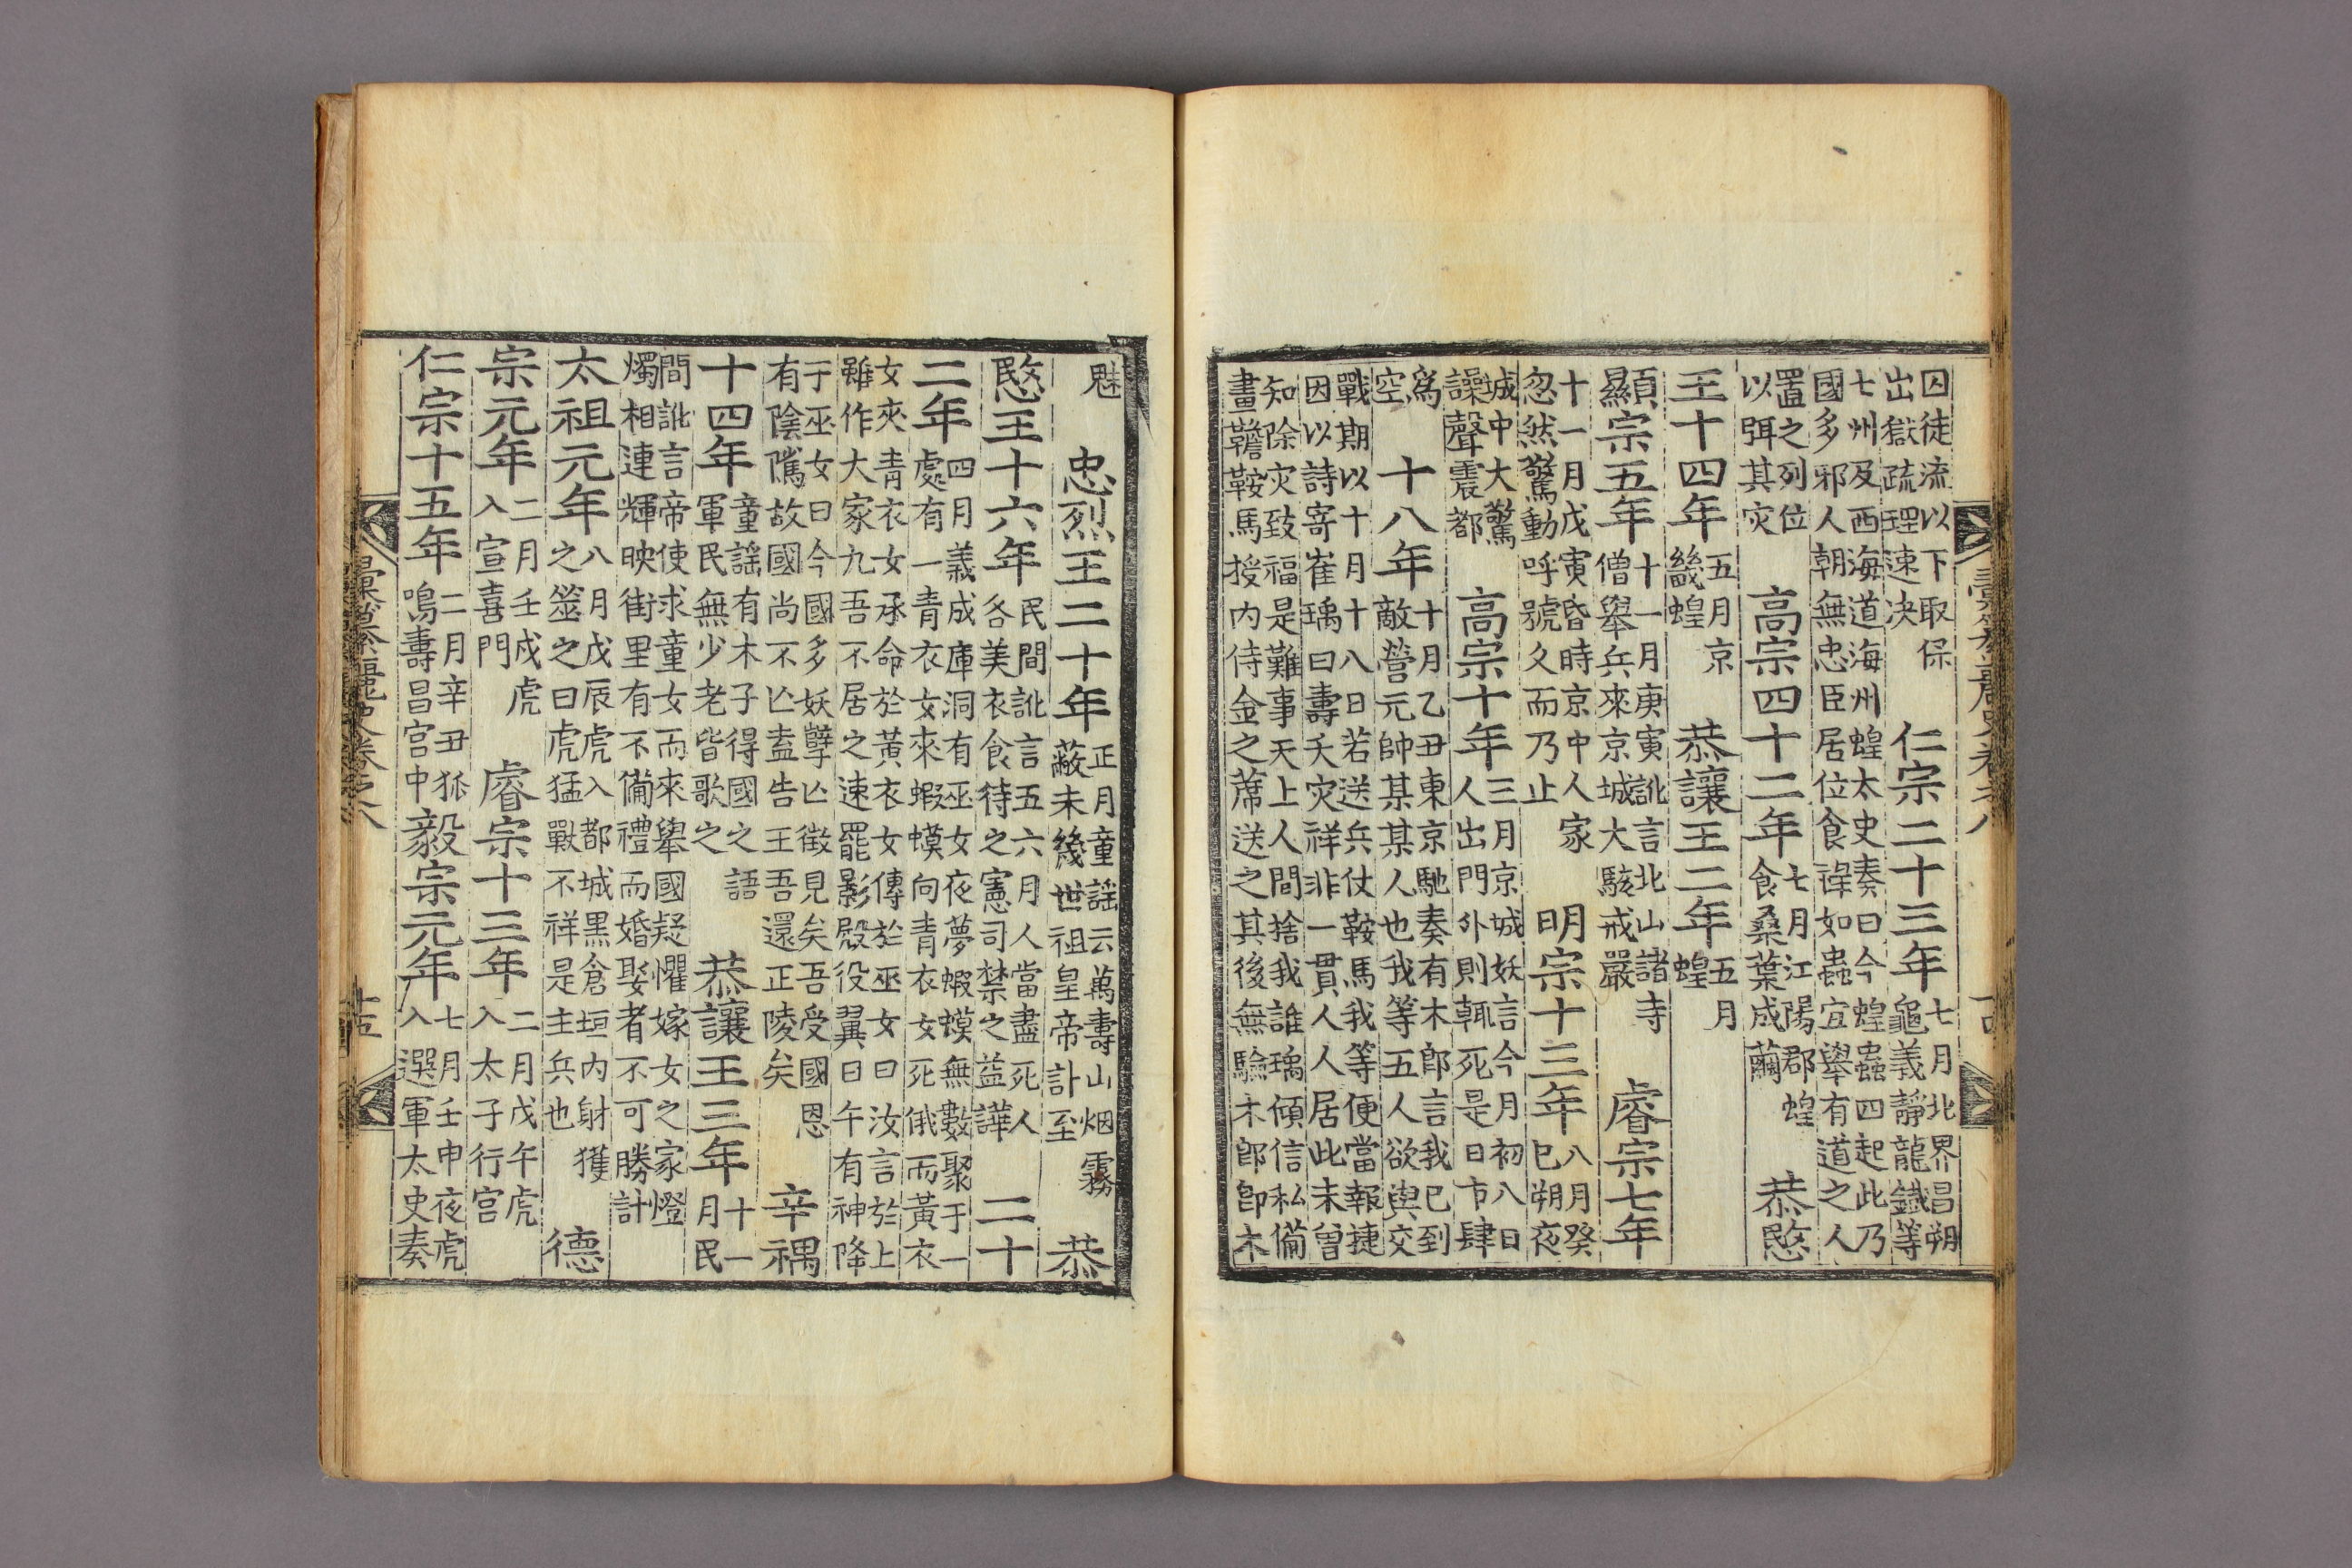 囚徒流以下取保
出獄疏理速决
仁宗二十三年
七月北界昌朔
龜義靜龍鐵等
七州及西海道海州蝗太史奏曰今蝗蟲四起此乃
國多邪人朝無忠臣居位食祿如蟲宜舉有道之人
置之列位
以弭其灾
高宗四十二年
七月江陽郡蝗
食桑葉成繭
恭愍
王十四年
五月京
畿蝗
恭讓王二年
五月
蝗
顯宗五年
十一月庚寅訛言北山諸寺
僧舉兵來京城大駭戒嚴
睿宗七年
十一月戊寅昏時京中人家
忽然驚動呼號久而乃止
明宗十三年
八月癸
巳朔夜
城中大驚
譟聲震都
高宗十年
三月京城妖言今月初八日
人出門外則輒死是日市肆
爲
空
十八年
十月乙丑東京馳奏有木郎言我已到
敵營元帥某某人也我等五人欲與交
戰期以十月十八日若送兵仗鞍馬我等便當報捷
因以詩寄崔瑀曰壽夭灾祥非一貫人人居此未曾
知除灾致福是難事天上人間捨我誰瑀傾信私備
畫韂鞍馬授内侍金之蓆送之其後無驗木郎卽木
魅
忠烈王二十年
正月童謠云萬壽山烟霧
蔽未幾世祖皇帝訃至
恭
愍王十六年
民間訛言五六月人當盡死人
各美衣食待之憲司禁之益譁
二十
二年
四月義成庫洞有巫女夜夢蝦蟆無數聚于一
處有一青衣女來蝦蟆向青衣女死俄而黃衣
女夾青衣女承命於黃衣女傳於巫女曰汝言於上
雖作大家九吾不居之速罷影殿役翼日午有神降
于巫女曰今國多妖孽亡徵見矣吾受國恩
有陰隲故國尚不亡盍告王吾還正陵矣
辛禑
十四年
童謠有木子得國之語
軍民無少老皆歌之
恭讓王三年
十一
月民
間訛言帝使求童女而來舉國疑懼嫁女之家燈
燭相連輝映街里有不備禮而婚娶者不可勝計
太祖元年
八月戊辰虎入都城黑倉垣内射獲
之筮之曰虎猛戰不祥是主兵也
德
宗元年
二月壬戌虎
入宣喜門
睿宗十三年
二月戊午虎
入太子行宮
仁宗十五年
二月辛丑狐
鳴壽昌宮中
毅宗元年
七月壬申夜虎
入選軍太史奏
彙纂麗史卷之八
十五